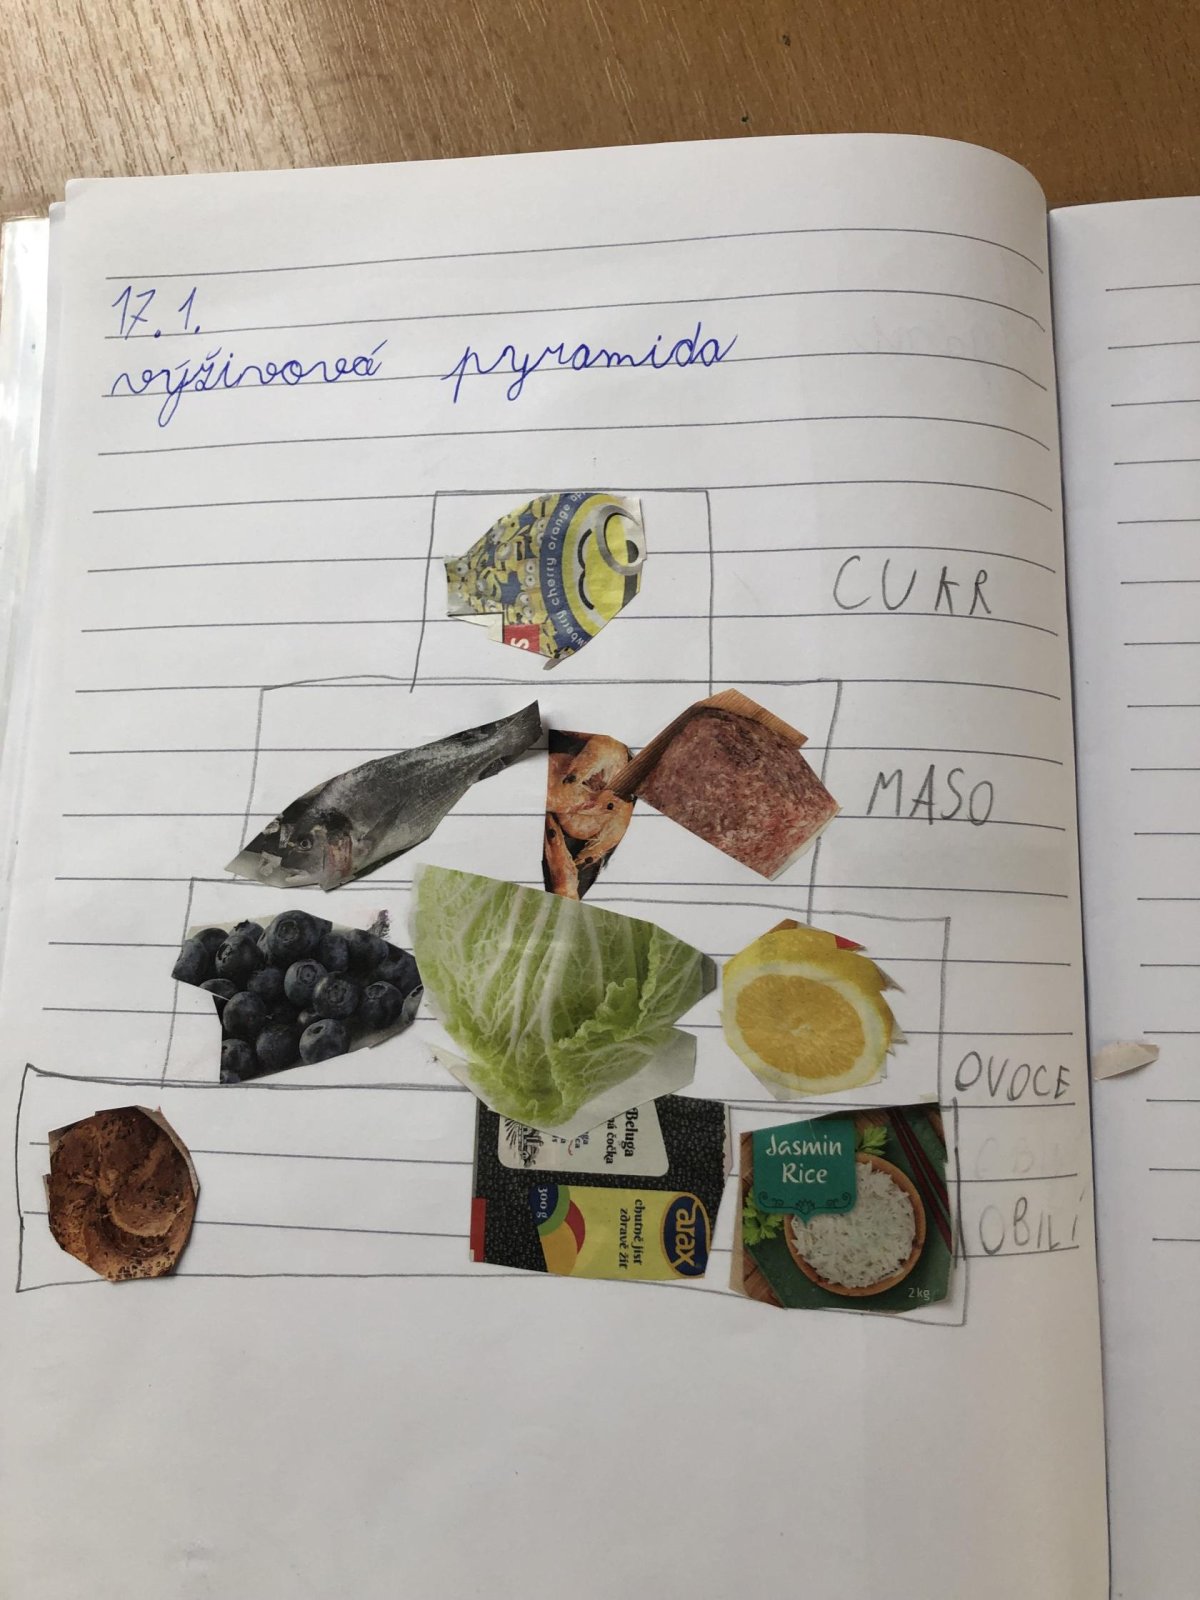 17.1.
výživová pyramida
wberry cherry orange ap
S
CUKR
MASO
OVOCE
Beluga
ná čočka
300 g
chutně jíst
zdravě žít
arax
Jasmin
Rice
2 kg
OBILÍ